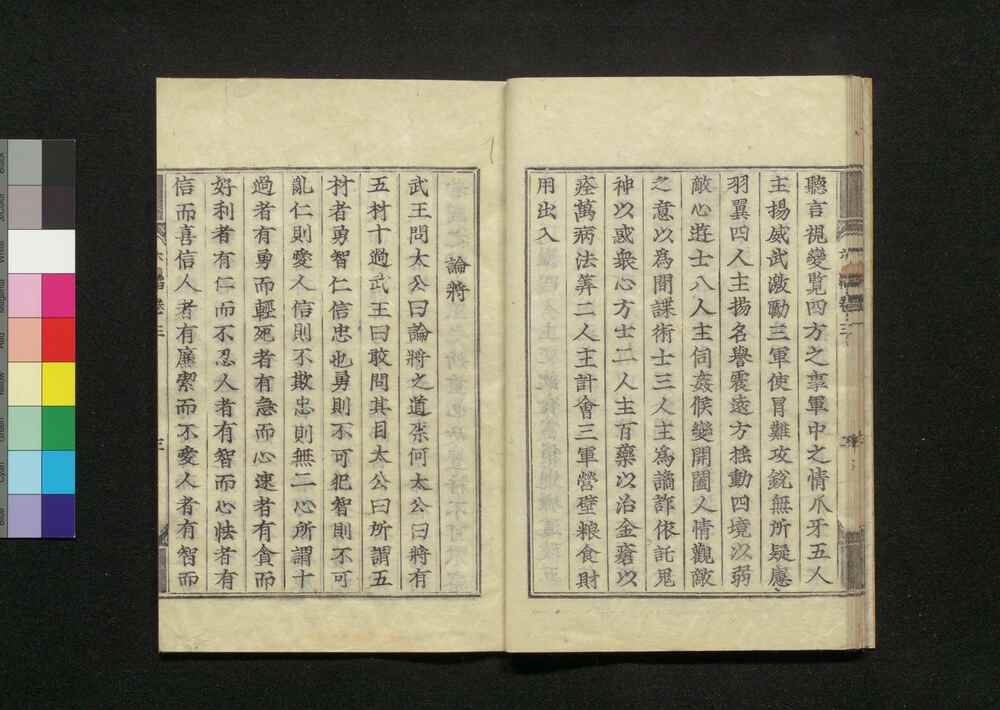 聽言視變覽四方之事軍中之情爪牙五人
主揚威武激勵三軍使冒難攻銳無所疑慮
羽翼四人主揚名譽震遠方揺動四境以弱
敵心遊士八人主伺姦候變開闔人情觀敵
之意以爲間諜術士三人主爲譎詐依託鬼
神以惑衆心方士二人主百藥以治金瘡以
痊萬病法筭二人主計會三軍營壁粮食財
用出入
論將
武王問太公曰論將之道柰何太公曰將有
五材十過武王曰敢問其目太公曰所謂五
材者勇智仁信忠也勇則不可犯智則不可
亂仁則愛人信則不欺忠則無二心所謂十
過者有勇而輕死者有急而心速者有貪而
好利者有仁而不忍人者有智而心怯者有
信而喜信人者有廉潔而不愛人者有智而
六韜卷三
三